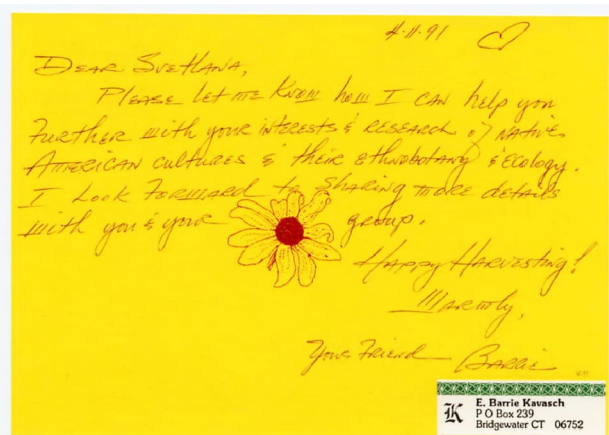 4.11.91
Dear Svetlana,
Please let me know how I can help you
further with your interests & research of Native
American cultures & their ethnobotany & ecology.
I look forward to sharing more details
with you & your group.
Happy Harvesting!
Warmly,
Your Friend Barrie
K
E. Barrie Kavasch
P O Box 239
Bridgewater CT 06752